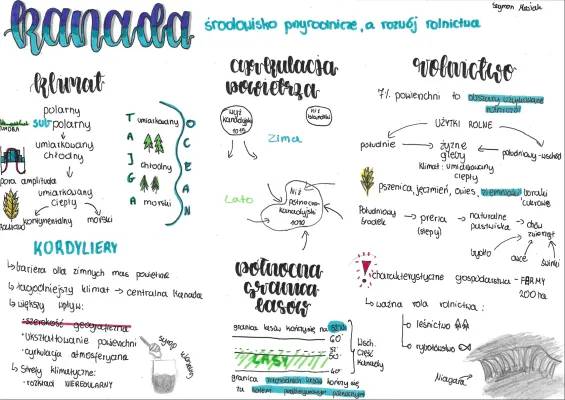 kanada
środowisko przyrodnicze, a rozwój rolnictwa
Szymon
klimat
polarny
subpolarny
umiarkowany
chłodny
pora amplituda
umiarkowany
ciepły
kontynentalny
morski
TAJGA
umiarkowany
chłodny
morski
OCEAN
KORDYLIERY
↳ bariera dla zimnych mas powietrza
↳ łagodniejszy klimat → centralna Kanada
↳ większy wpływ:
- szerokość geograficzna
- ukształtowanie powierzchni
- cyrkulacja atmosferyczna
↳ strefy klimatyczne:
- rozkład NIEREGULARNY
syrop klonowy
cyrkulacja
powietrza
wyż
kanadyjski
1019
niż
islandzki
Zima
Lato
Niż
północno-
kanadyjski
1010
północna
granica
lasów
granica lasów kończy się na
60°
LASY
50°
40°
Wsch.
Część
Kanady
granica zachodnich lasów kończy się
za kołem podbiegunowym północnym
rolnictwo
7% powierzchni to obszary użytkowane
rolniczo
UŻYTKI ROLNE
południe
żyzne
gleby
południowy-wschód
klimat: umiarkowany
ciepły
pszenica, jęczmień, owies, ziemniaki, buraki
cukrowe
Południowy
środek
→ preria
(stepy)
→ naturalne
pastwiska
→ chów
zwierząt
bydło
owce
świnki
! charakterystyczne gospodarstwa - FARMY
200 ha
↳ ważna rola rolnictwa:
↳ leśnictwo
↳ rybołówstwo
Niagara